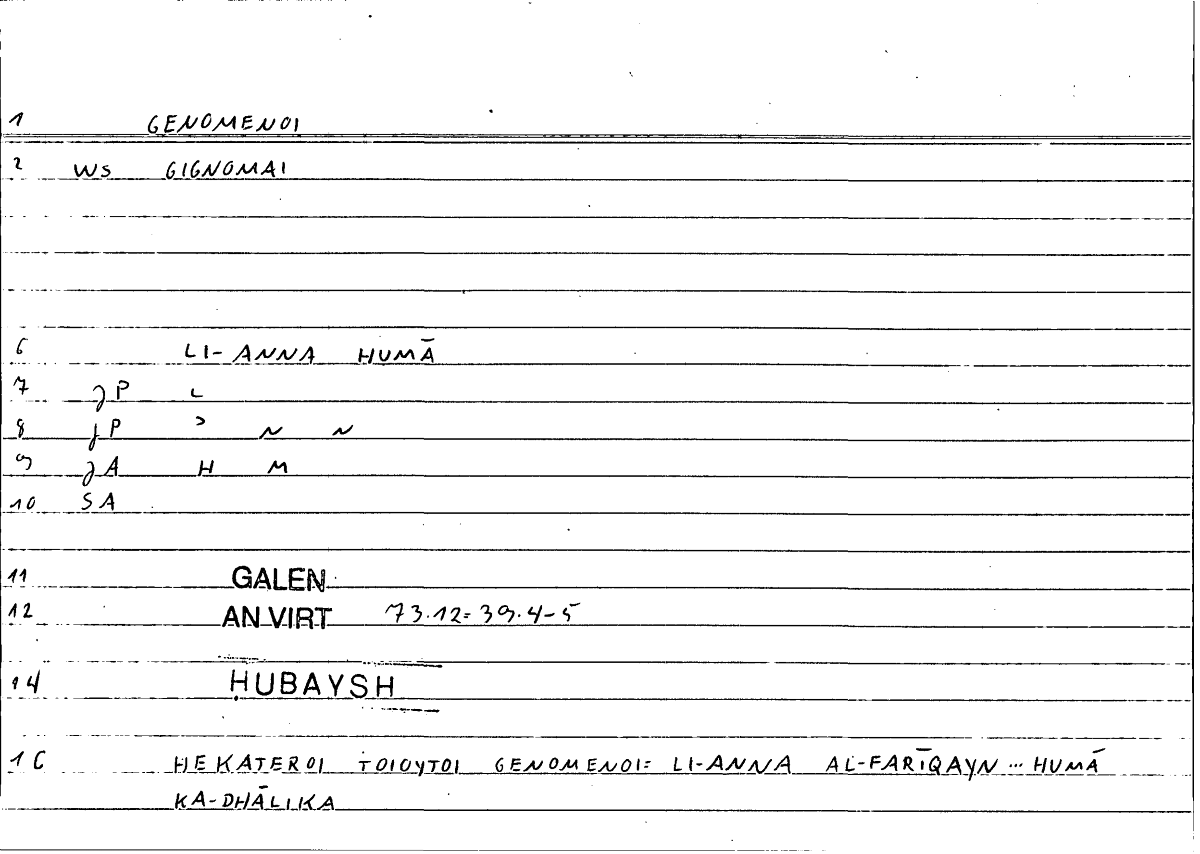 1 GENOMENOI
2 WS GIGNOMAI
6 LI-ANNA HUMĀ
7 P L
8 P ᵓ N N
9 A H M
10 SA
11 GALEN
12 AN VIRT 73.12=39.4-5
14 ḤUBAYSH
1C HEKATEROI TOIOYTOI GENOMENOI= LI-ANNA AL-FARĪQAYN ... HUMĀ
KA-DHĀLIKA